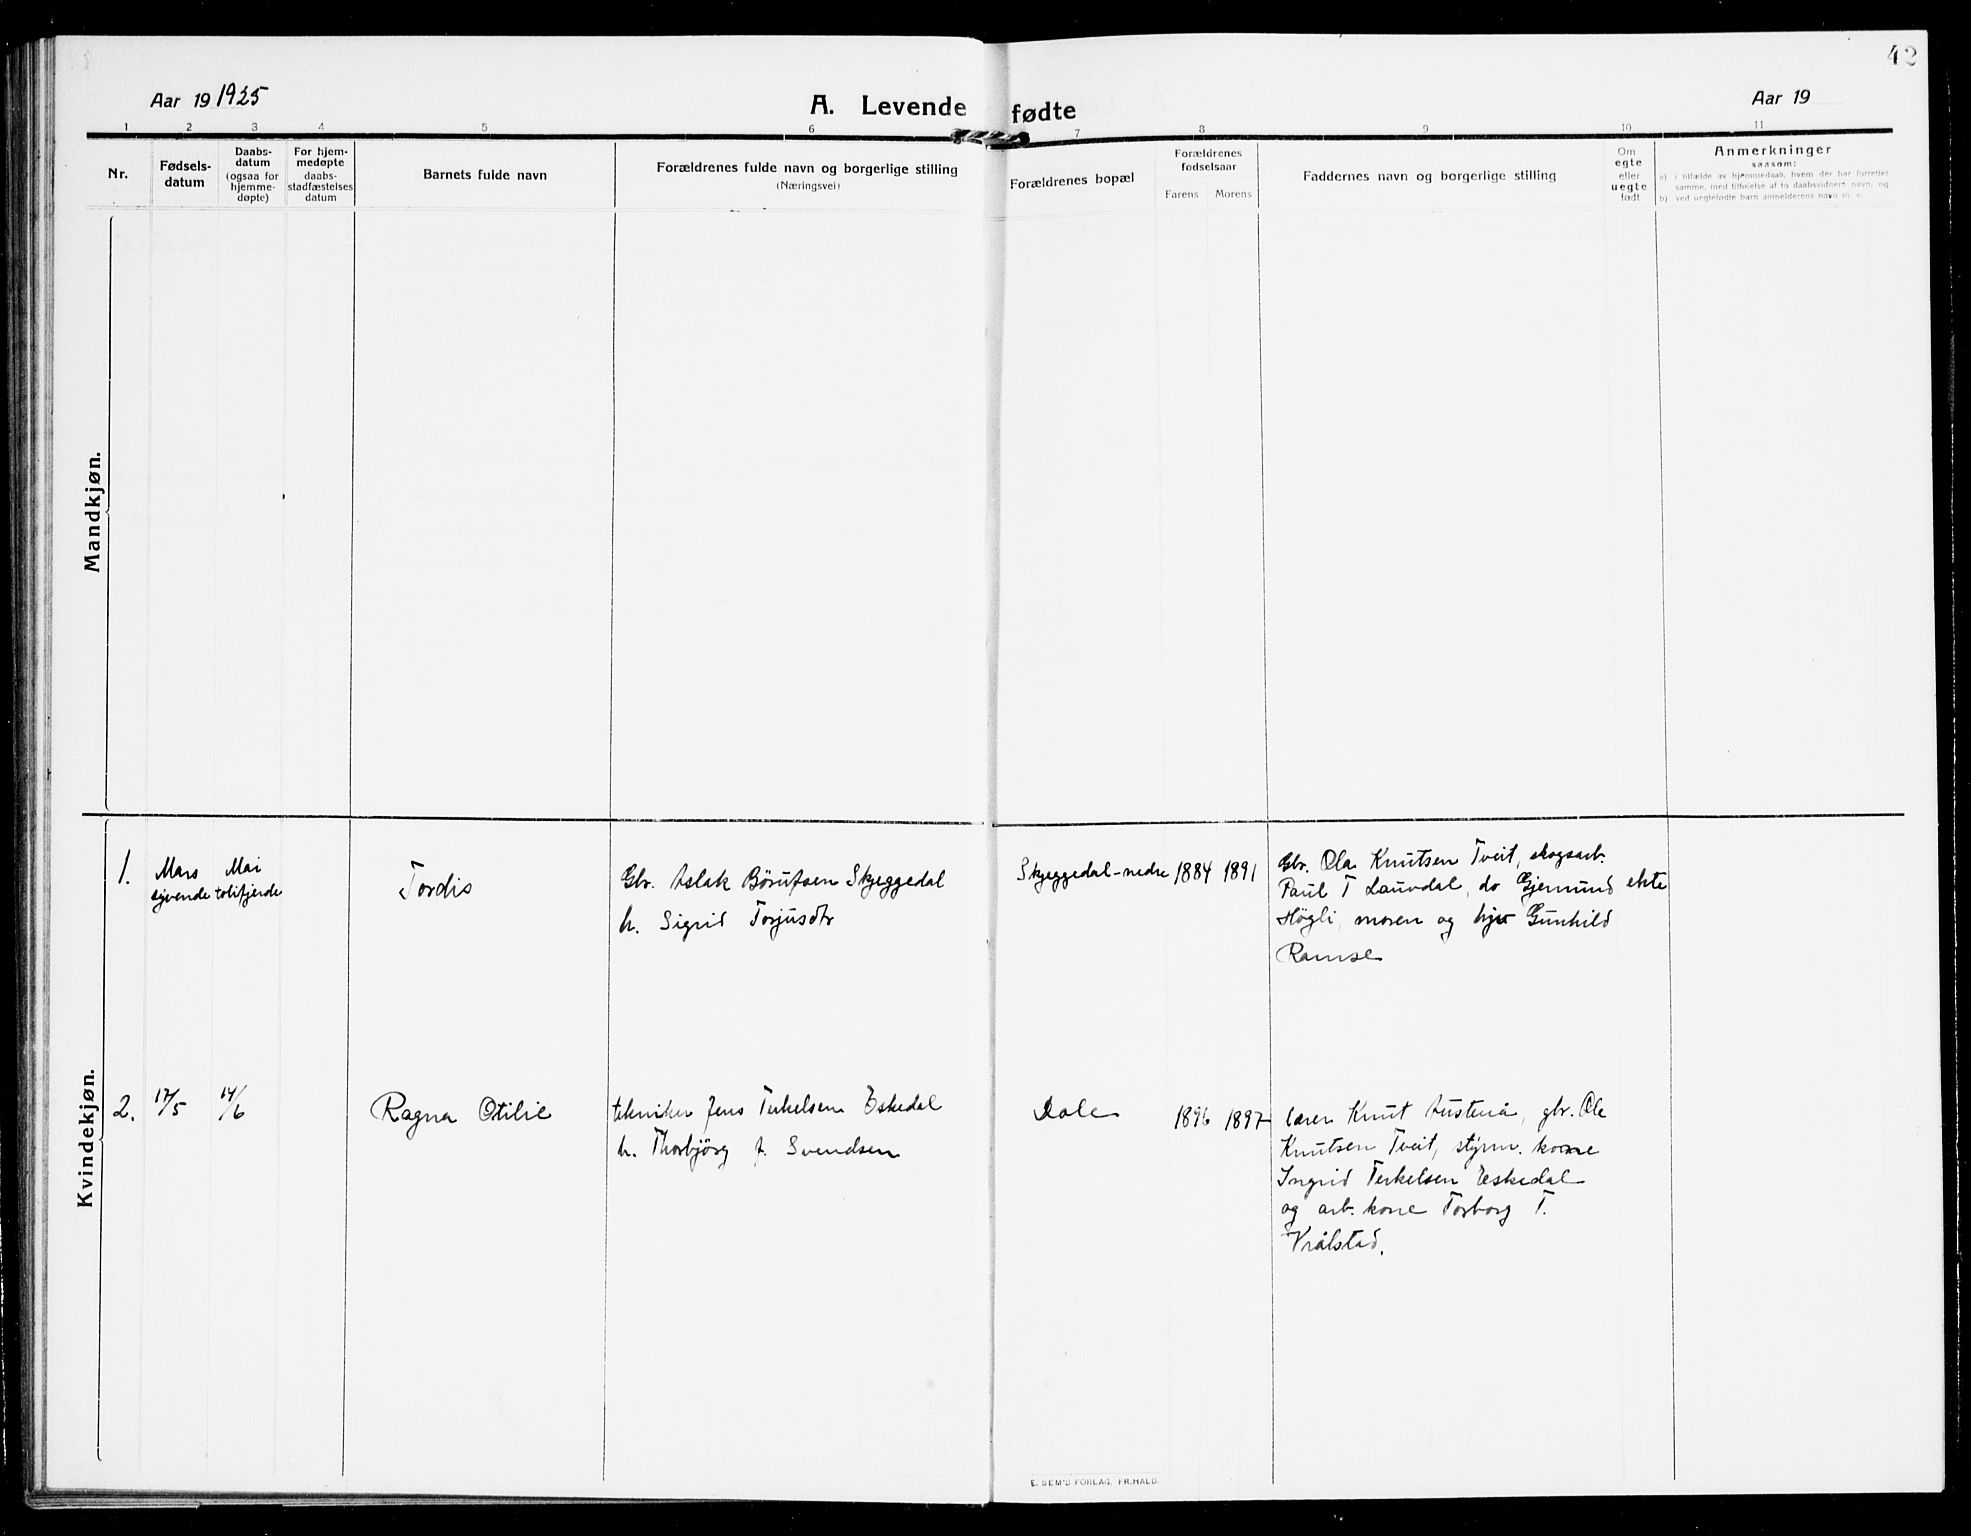 42
Aar 19 1925
A. Levende fødte
Aar 19
1 2 3 4 5 6 7 8 9 10 11
Nr.
Fødsels-
datum
Daabs-
datum
(ogsaa for
hjemme-
døpte)
For hjem-
medøpte
daabs-
stadfæstelses
datum
Barnets fulde navn
Forældrenes fulde navn og borgerlige stilling
(Næringsvei)
Forældrenes bopæl
Forældrenes
fødselsaar
Farens Morens
Faddernes navn og borgerlige stilling
Om
egte
eller
uegte
født
Anmerkninger
saasom:
a) i tilfælde av hjemmedaab, hvem der har forrettet
samme, med tilføielse af to daabsvidners navn, og
b) ved uegtefødte barn anmelderens navn m. v.
Mandkjøn.
Kvindekjøn.
1.
Mars
syvende
Mai
Tordis
Gbr. Aslak Børufsen Skjeggedal
h. Sigrid Torjusdtr
Skjeggedal-nedre
1884 1891
Gbr. Ola Knutsen Tveit, skogsarb.
Paul T Lauvdal, do Gjermund
Høgli, moren og Gunhild
Ramse
ekte
2.
17/5
14/6
Ragna Otilie
tekniker Jens Terkelsen Eskedal
h. Thorbjørg f. Svendsen
Dale
1896 1897
lærer Knut Austenå, gbr. Ole
Knutsen Tveit, styrm. kone
Ingrid Terkelsen Eskedal
og arb. kone Torborg T.
Vrålstad.
E. SEM'S FORLAG, FR.HALD.